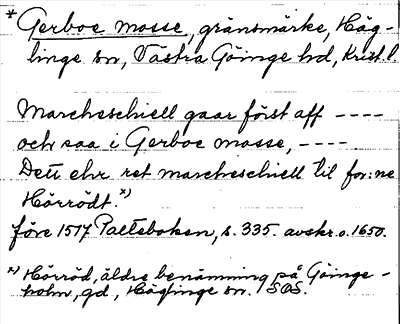 * Gerboe mosse, gränsmärke, Häg-
linge sn, Västra Göinge hd, Krist.l.
Marcheschiell gaar först aff ----
och saa i Gerboe mosse, ----.
Dett ehr ret marcheschiell til for:ne
Hörrödt.x)
före 1517 Palteboken, s. 335. avskr.o.1650.
x) Hörröd, äldre benämning på Göinge-
holm, gd, Häglinge sn. SOS.